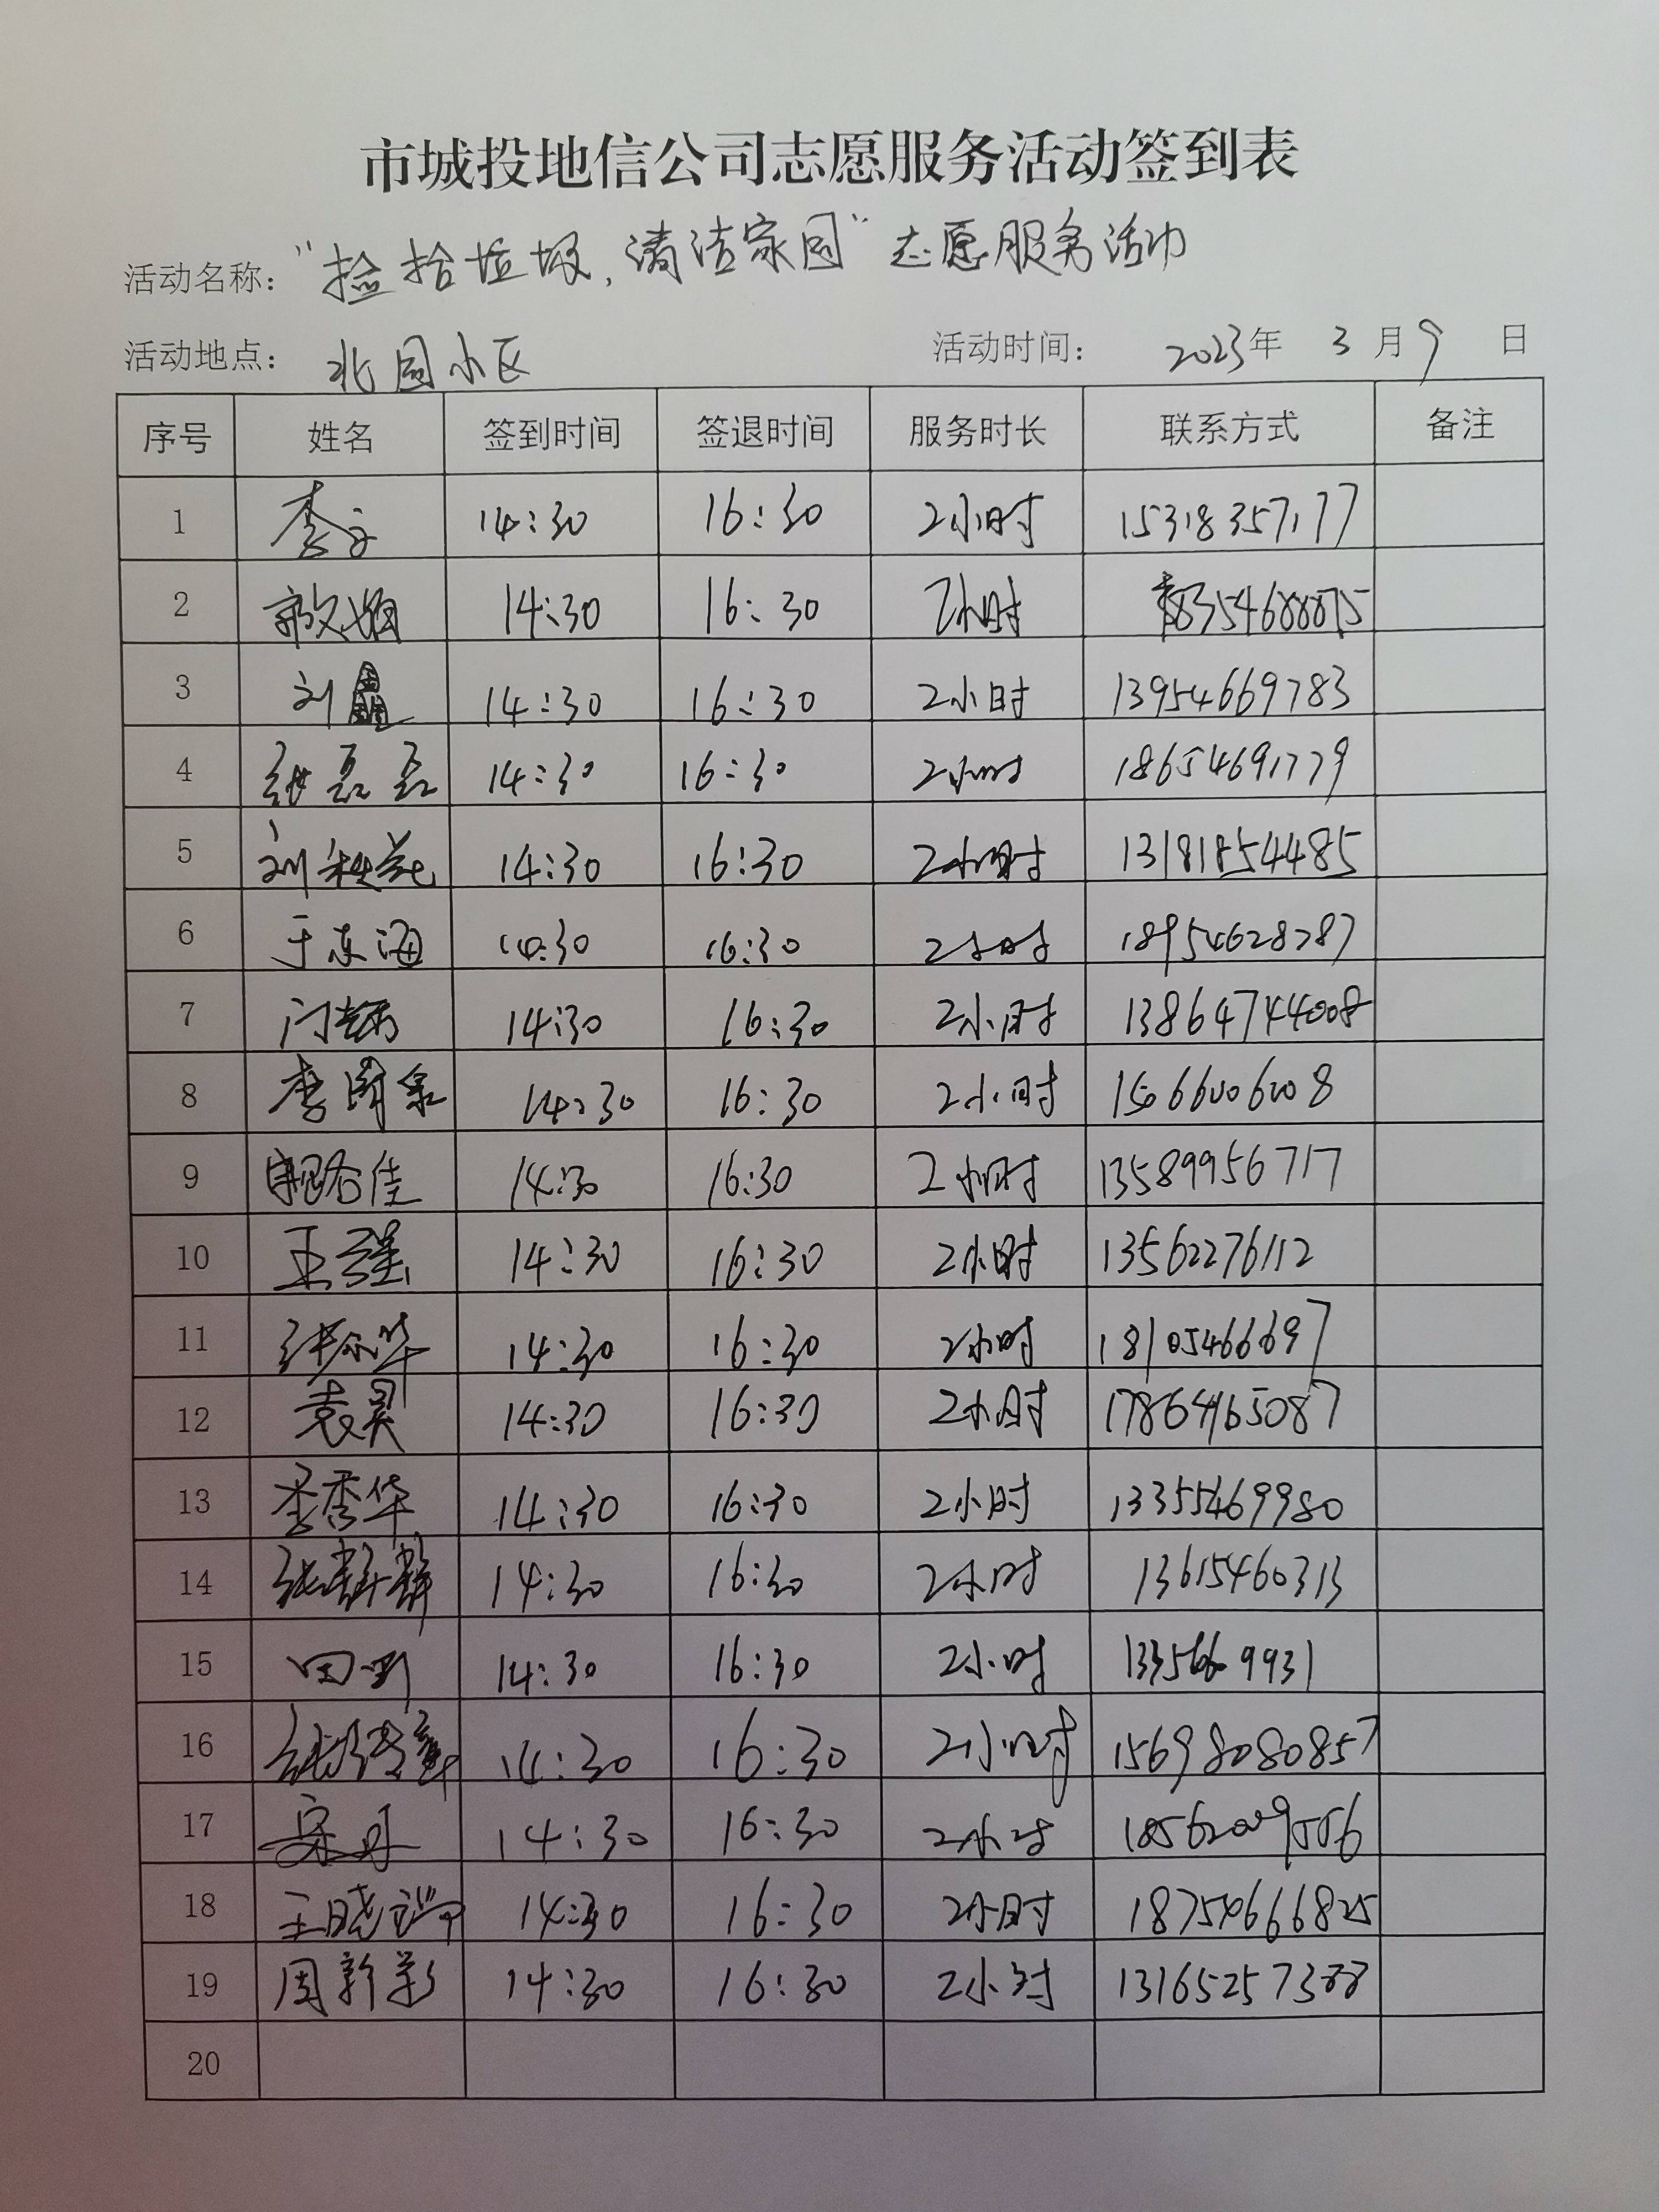 市城投地信公司志愿服务活动签到表
活动名称：“捡拾垃圾，清洁家园”志愿服务活动
活动地点：北园小区 活动时间：2023年 3月9日
序号 姓名 签到时间 签退时间 服务时长 联系方式 备注
1 14:30 16:30 2小时 15318357177
2 14:30 16:30 2小时
3 刘 14:30 16:30 2小时 13954669783
4 张磊磊 14:30 16:30 2小时 18654691779
5 刘秋苑 14:30 16:30 2小时 13181854485
6 于东海 14:30 16:30 2小时 18954628787
7 14:30 16:30 2小时 13864744008
8 14:30 16:30 2小时 15066006008
9 14:30 16:30 2小时 13589956717
10 王强 14:30 16:30 2小时 13562276112
11 14:30 16:30 2小时 18105466697
12 袁昊 14:30 16:30 2小时 17864165087
13 李秀华 14:30 16:30 2小时 13355469980
14 张静静 14:30 16:30 2小时 13615460313
15 14:30 16:30 2小时
16 14:30 16:30 2小时 15698080857
17 14:30 16:30 2小时
18 王晓 14:30 16:30 2小时 18754666825
19 周新彩 14:30 16:30 2小时 13165257388
20